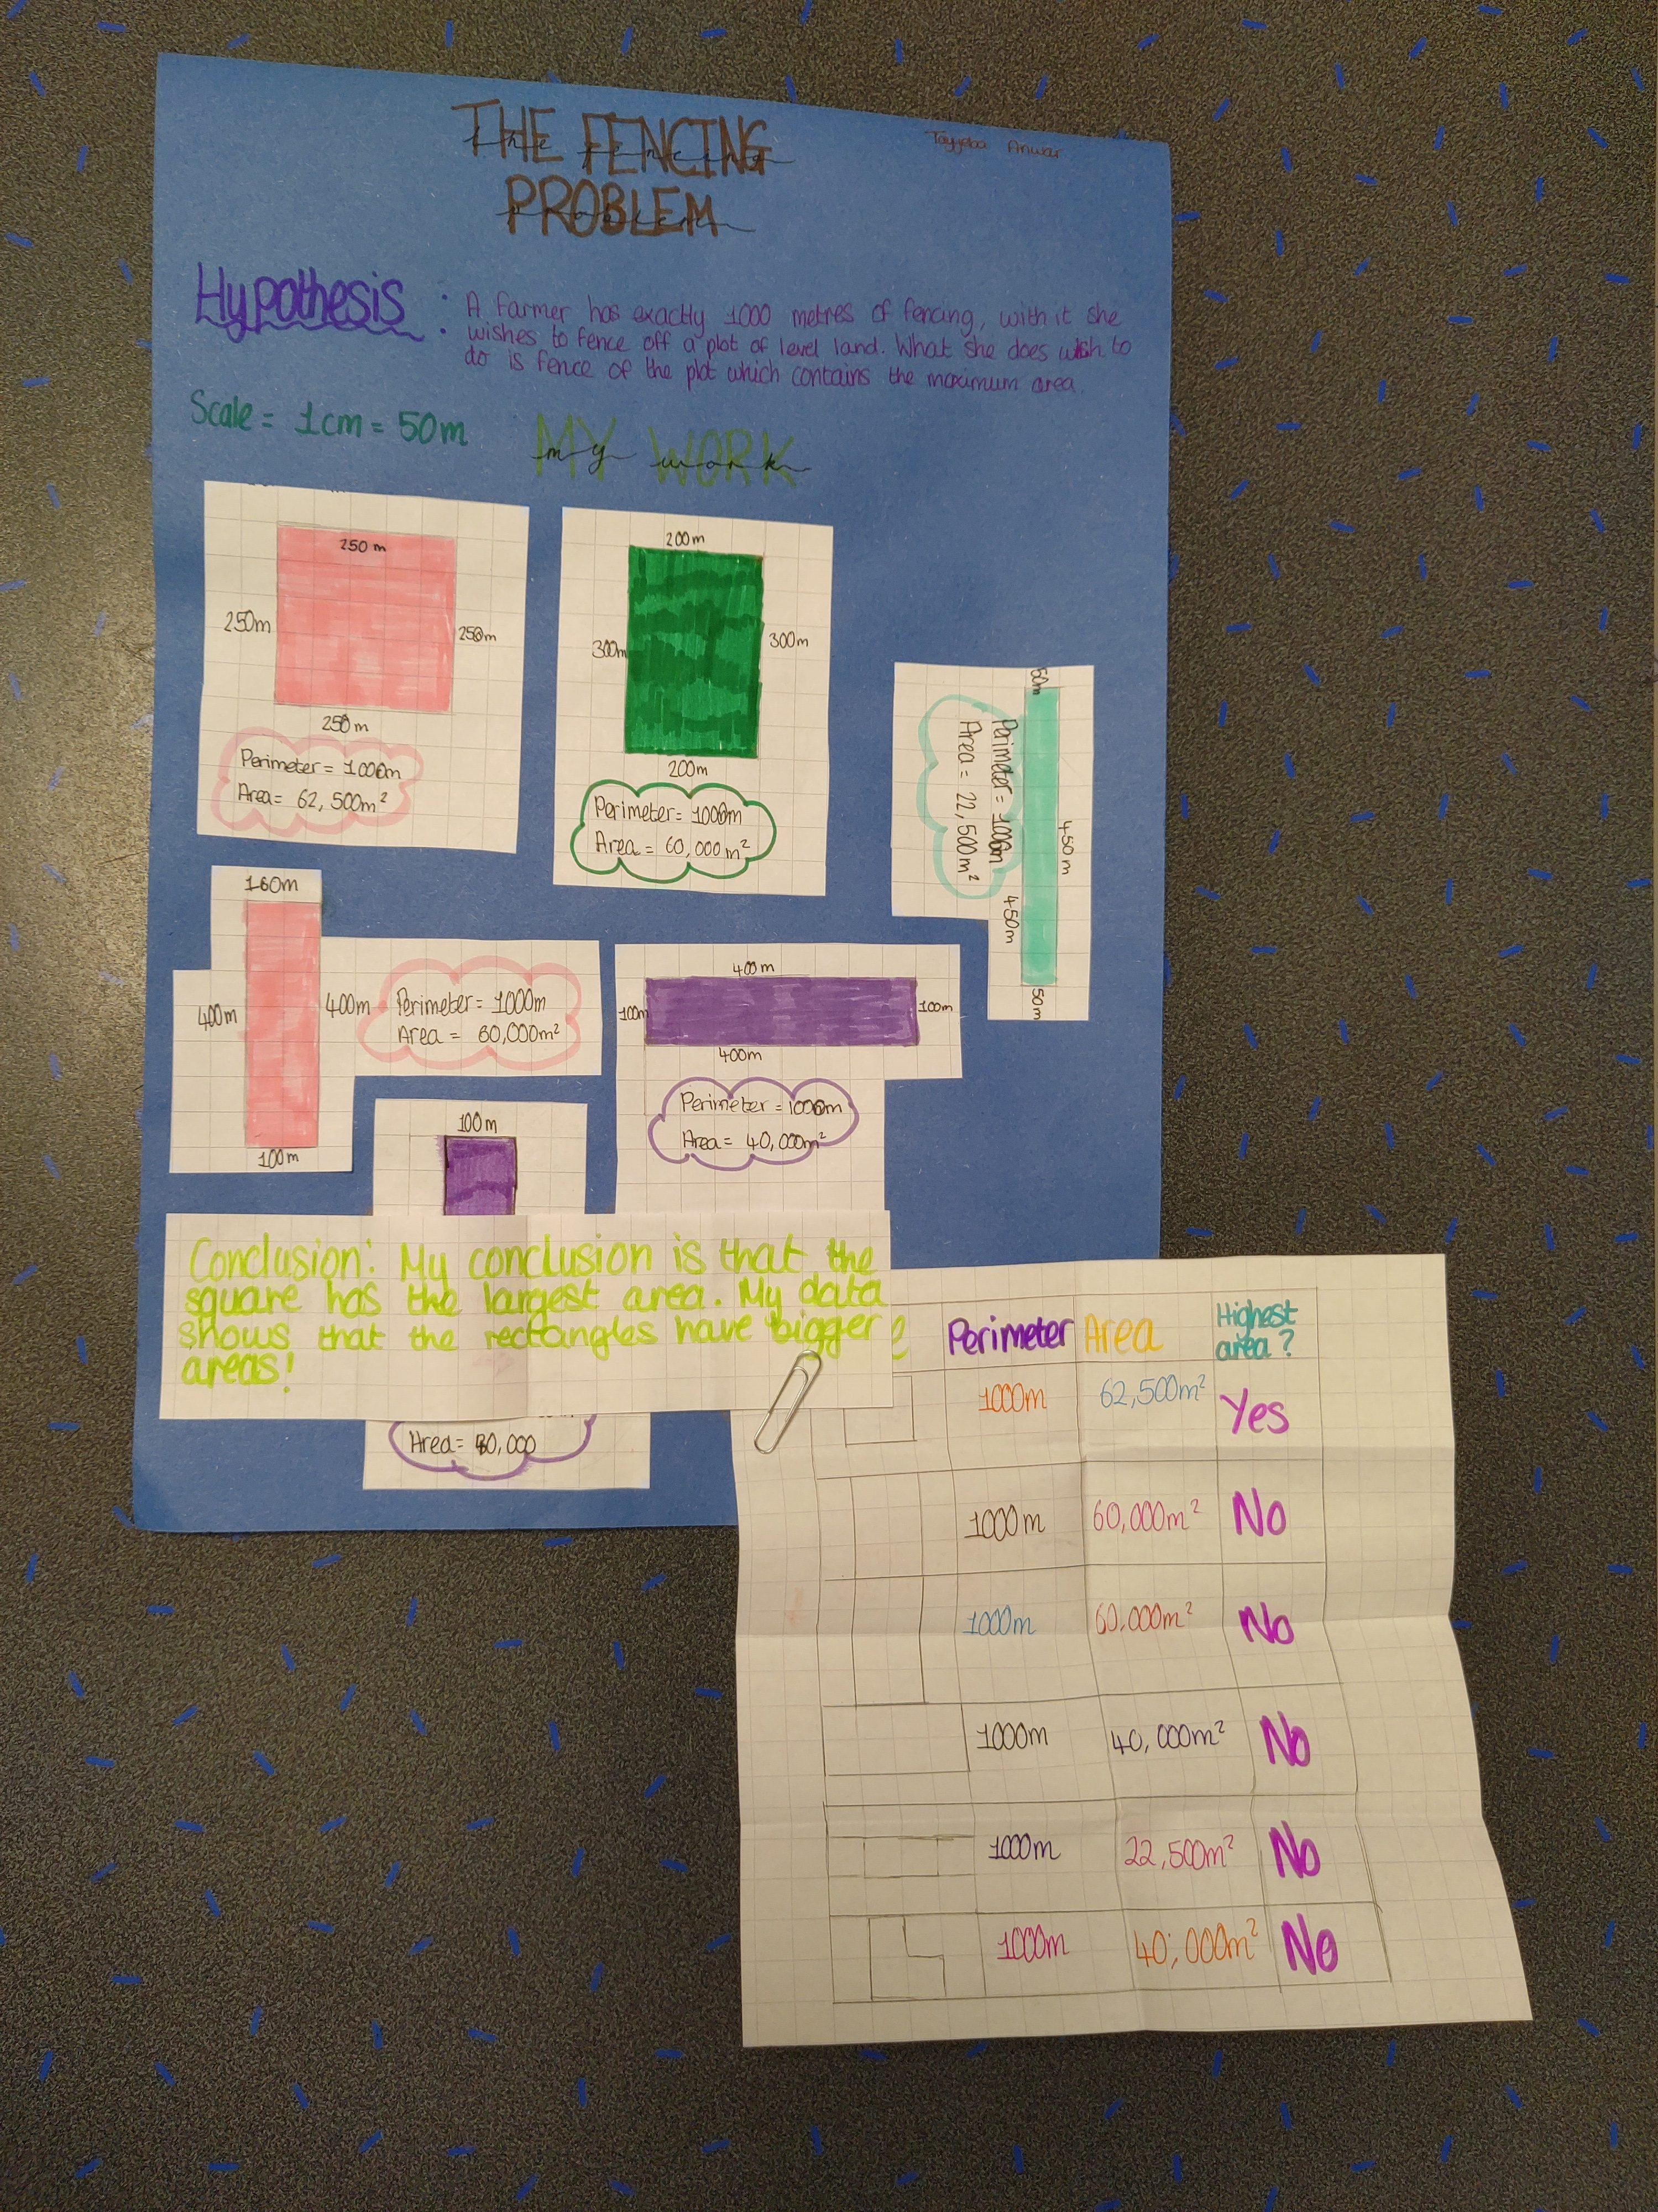 THE FENCING
the fencing
PROBLEM
problem
Tayyeba Anwar
Hypothesis :
A farmer has exactly 1000 metres of fencing, with it she
wishes to fence off a plot of level land. What she does wish to
do is fence of the plot which contains the maximum area.
Scale = 1cm = 50m
MY WORK
my work
250 m
250m
250m
250m
Perimeter = 1000m
Area = 62, 500m²
200m
300m
300m
200m
Perimeter = 1000m
Area = 60,000m²
50m
Perimeter = 1000m
Area = 22,500m²
450 m
450m
50m
160m
400m
400m
Perimeter = 1000m
Area = 60,000m²
100m
400m
100m
100m
400m
Perimeter = 1000m
Area = 40,000m²
100m
Conclusion: My conclusion is that the
square has the largest area. My data
shows that the rectangles have bigger
areas!
Area = 40,000
Perimeter Area Highest
area?
1000m 62,500m² Yes
1000m 60,000m² No
1000m 60,000m² No
1000m 40,000m² No
1000m 22,500m² No
1000m 40,000m² No